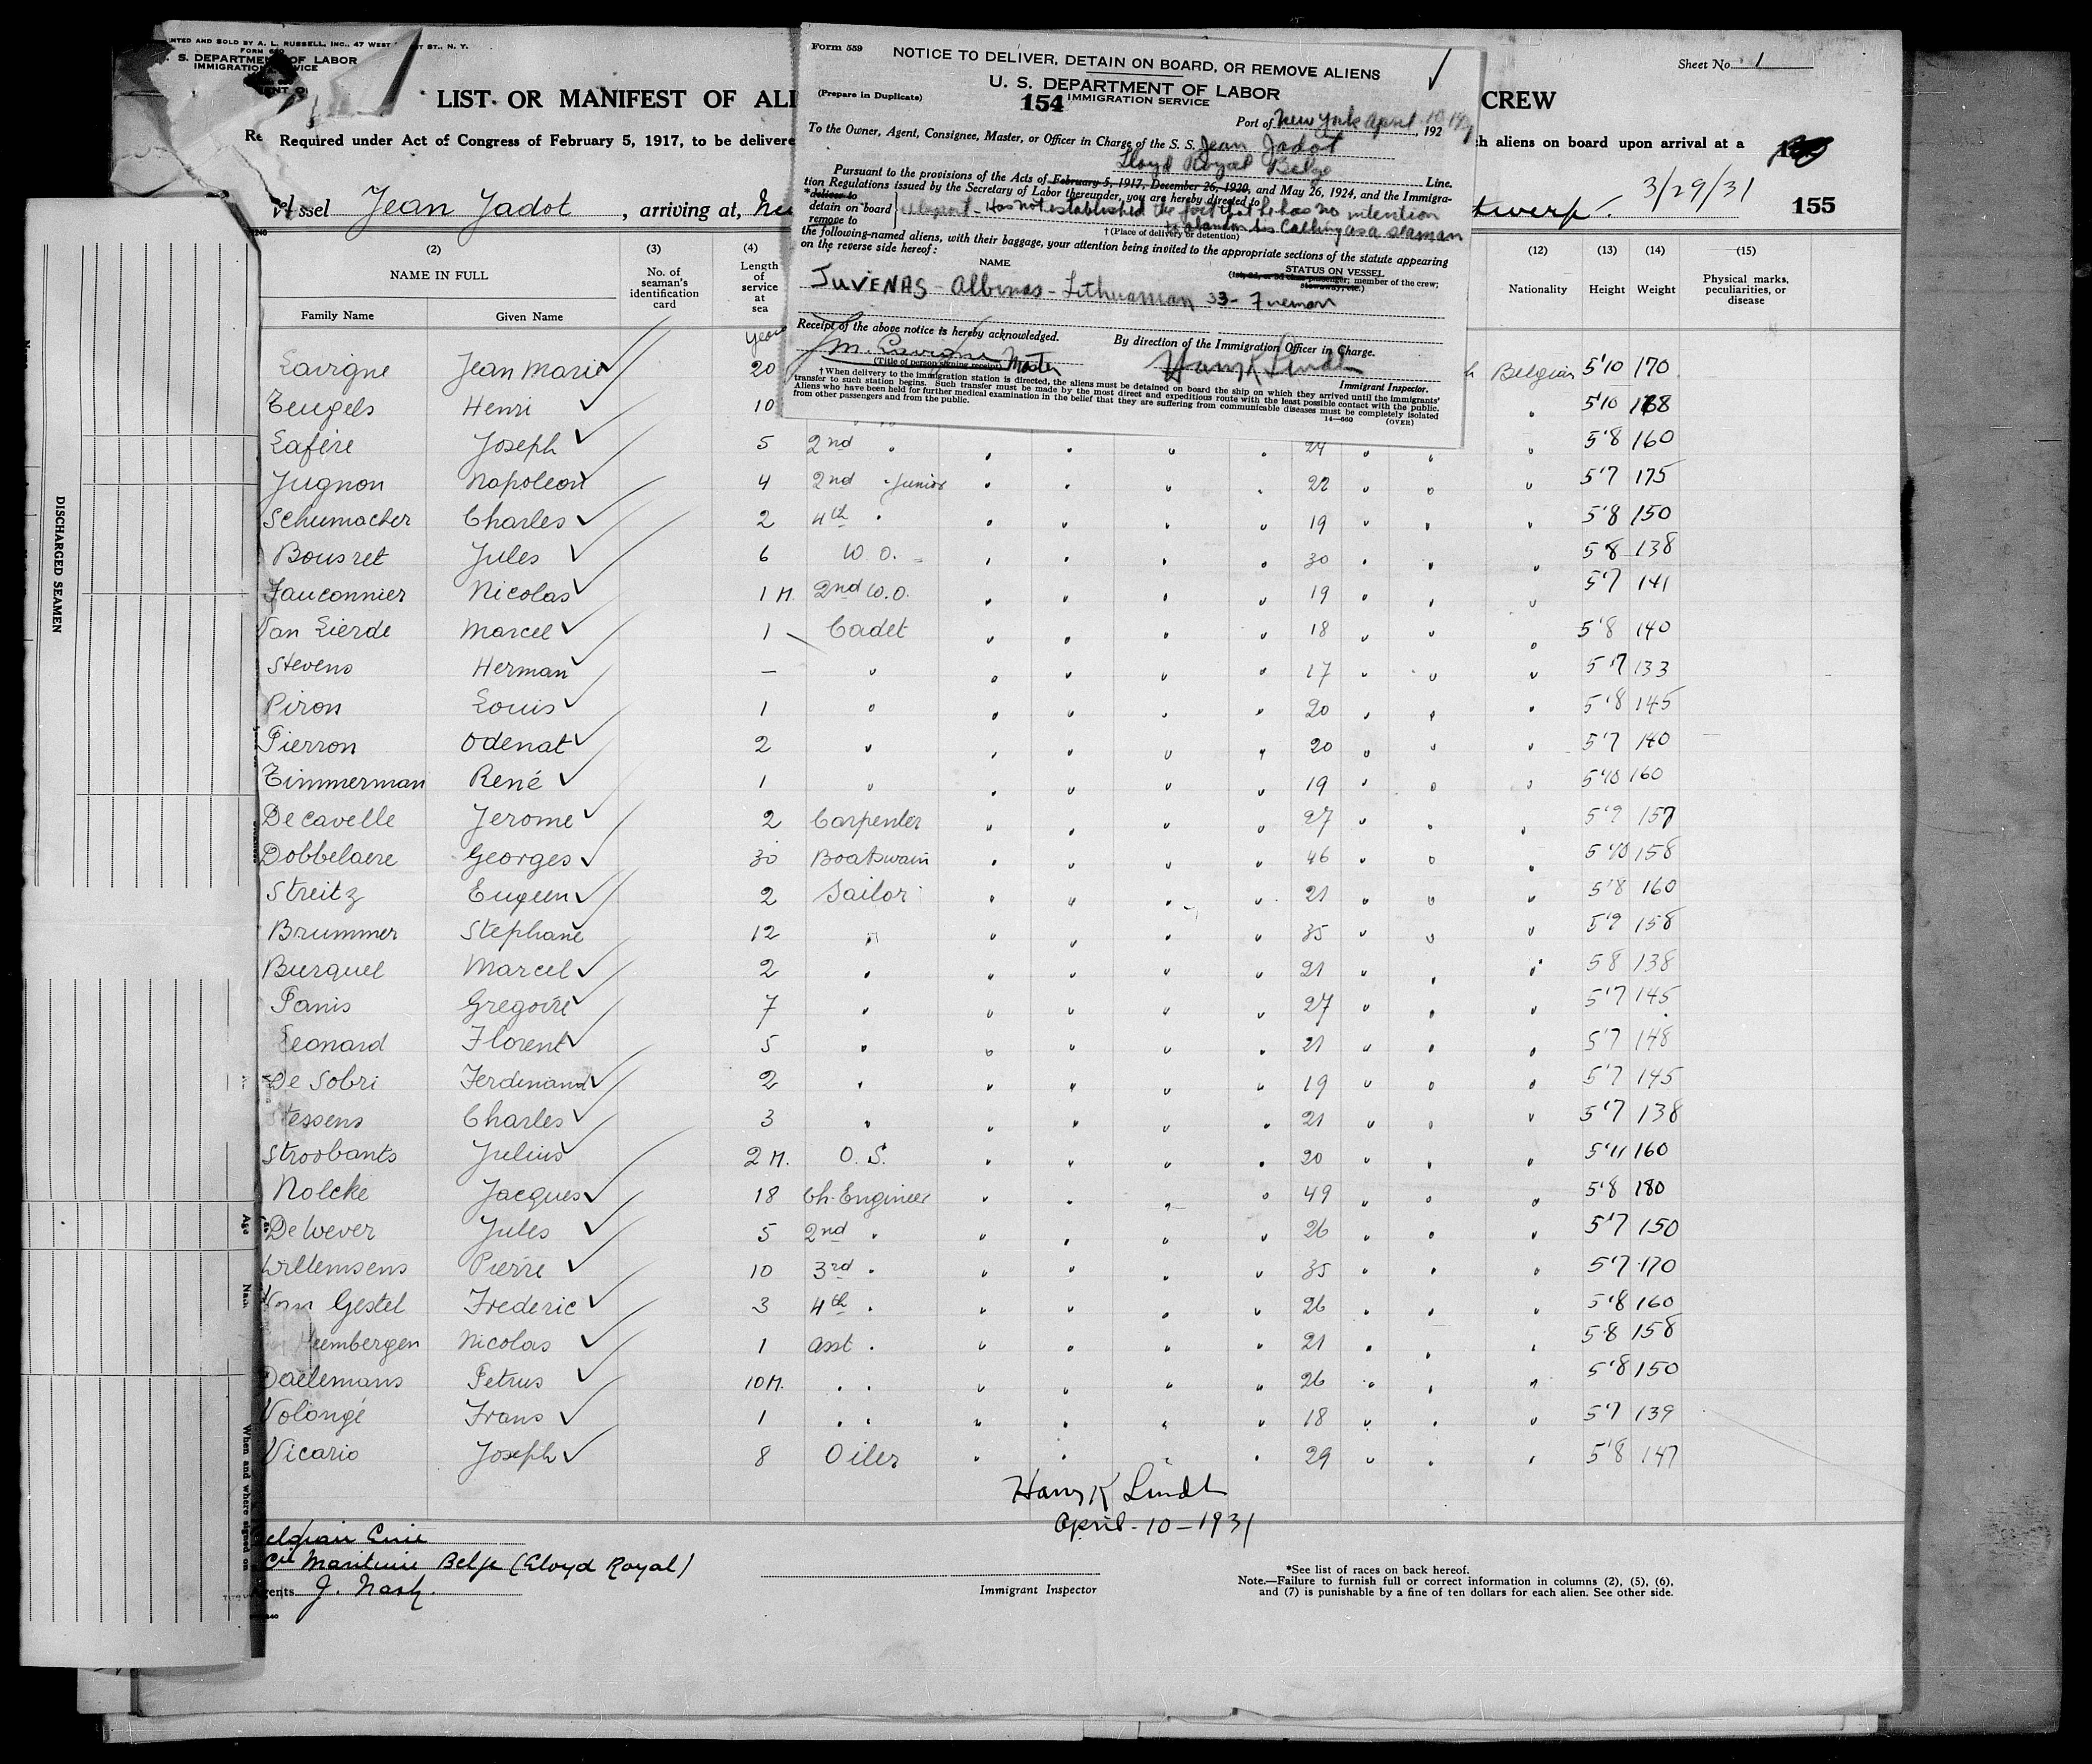 NTED AND SOLD BY A. L. RUSSELL, INC., 47 WEST ST., N. Y.
S. DEPARTMENT OF LABOR
IMMIGRATION SERVICE
LIST OR MANIFEST OF ALI
CREW
Sheet No. 1
Required under Act of Congress of February 5, 1917, to be delivere
h aliens on board upon arrival at a
Jean Jadot , arriving at,
twerp. 3/29/31
155
Form 559
NOTICE TO DELIVER, DETAIN ON BOARD, OR REMOVE ALIENS
U. S. DEPARTMENT OF LABOR
(Prepare in Duplicate)
154 IMMIGRATION SERVICE
Port of New York April 10 , 192
To the Owner, Agent, Consignee, Master, or Officer in Charge of the S. S. Jean Jadot
Lloyd Royal Belge Line.
Pursuant to the provisions of the Acts of February 5, 1917, December 26, 1920, and May 26, 1924, and the Immigra-
tion Regulations issued by the Secretary of Labor thereunder, you are hereby directed to
*deliver to
detain on board
remove to
Has not established the fact that he has no intention
to abandon his calling as a seaman
†(Place of delivery or detention)
the following-named aliens, with their baggage, your attention being invited to the appropriate sections of the statute appearing
on the reverse side hereof:
NAME
STATUS ON VESSEL
(1st, 2d, or 3d class passenger; member of the crew;
stowaway, etc.)
JUVENAS - Albinas - Lithuanian 33 - Fireman
Receipt of the above notice is hereby acknowledged.
By direction of the Immigration Officer in Charge.
Master
(Title of person signing receipt)
Harry K Lindt
Immigrant Inspector.
†When delivery to the immigration station is directed, the aliens must be detained on board the ship on which they arrived until the immigrants'
transfer to such station begins. Such transfer must be made by the most direct and expeditious route with the least possible contact with the public.
Aliens who have been held for further medical examination in the belief that they are suffering from communicable diseases must be completely isolated
from other passengers and from the public.
14—660 (OVER)
(2) (3) (4) (12) (13) (14) (15)
NAME IN FULL
Family Name Given Name
No. of seaman's identification card
Length of service at sea
Nationality Height Weight
Physical marks, peculiarities, or disease
Lavigne Jean Marie 20 Belgian 5'10 170
Teugels Henri 10 " 5'10 168
Lafère Joseph 5 2nd " " " " " 24 " " " 5'8 160
Jugnon Napoleon 4 2nd " Junior " " " " 22 " " " 5'7 175
Schumacher Charles 2 4th " " " " " 19 " " " 5'8 150
Bousret Jules 6 W.O. " " " " 30 " " " 5'8 138
Fauconnier Nicolas 1 M. 2nd W.O. " " " " 19 " " " 5'7 141
Van Lierde Marcel 1 Cadet " " " " 18 " " " 5'8 140
Stevens Herman — " " " " " 17 " " " 5'7 133
Piron Louis 1 " " " " " 20 " " " 5'8 145
Pierron Odenat 2 " " " " " 20 " " " 5'7 140
Timmerman René 1 " " " " " 19 " " " 5'10 160
Decavelle Jerome 2 Carpenter " " " " 27 " " " 5'9 157
Dobbelaere Georges 30 Boatswain " " " " 46 " " " 5'10 158
Streitz Eugeen 2 Sailor " " " " 21 " " " 5'8 160
Brummer Stephane 12 " " " " " 35 " " " 5'9 158
Burquel Marcel 2 " " " " " 21 " " " 5'8 138
Panis Gregoire 7 " " " " " 27 " " " 5'7 145
Leonard Florent 5 " " " " " 21 " " " 5'7 148
De Sobri Ferdinand 2 " " " " " 19 " " " 5'7 145
Stessens Charles 3 " " " " " 21 " " " 5'7 138
Stroobants Julius 2 M. O. S. " " " " 20 " " " 5'11 160
Nolcke Jacques 18 Ch. Engineer " " " " 49 " " " 5'8 180
De Wever Jules 5 2nd " " " " " 26 " " " 5'7 150
Willemsens Pierre 10 3rd " " " " " 35 " " " 5'7 170
Van Gestel Frederic 3 4th " " " " " 26 " " " 5'8 160
Nicolas 1 asst " " " " " 21 " " " 5'8 158
Daelemans Petrus 10 M. " " " " " " 26 " " " 5'8 150
Volongé Frans 1 " " " " " " 18 " " " 5'7 139
Vicario Joseph 8 Oiler " " " " 29 " " " 5'8 147
Harry K Lindt
April - 10 - 1931
elgian Line
Cie Maritime Belge (Lloyd Royal)
Agents J. Nash.
Immigrant Inspector
*See list of races on back hereof.
Note.—Failure to furnish full or correct information in columns (2), (5), (6),
and (7) is punishable by a fine of ten dollars for each alien. See other side.
DISCHARGED SEAMEN
Age
When and where signed on